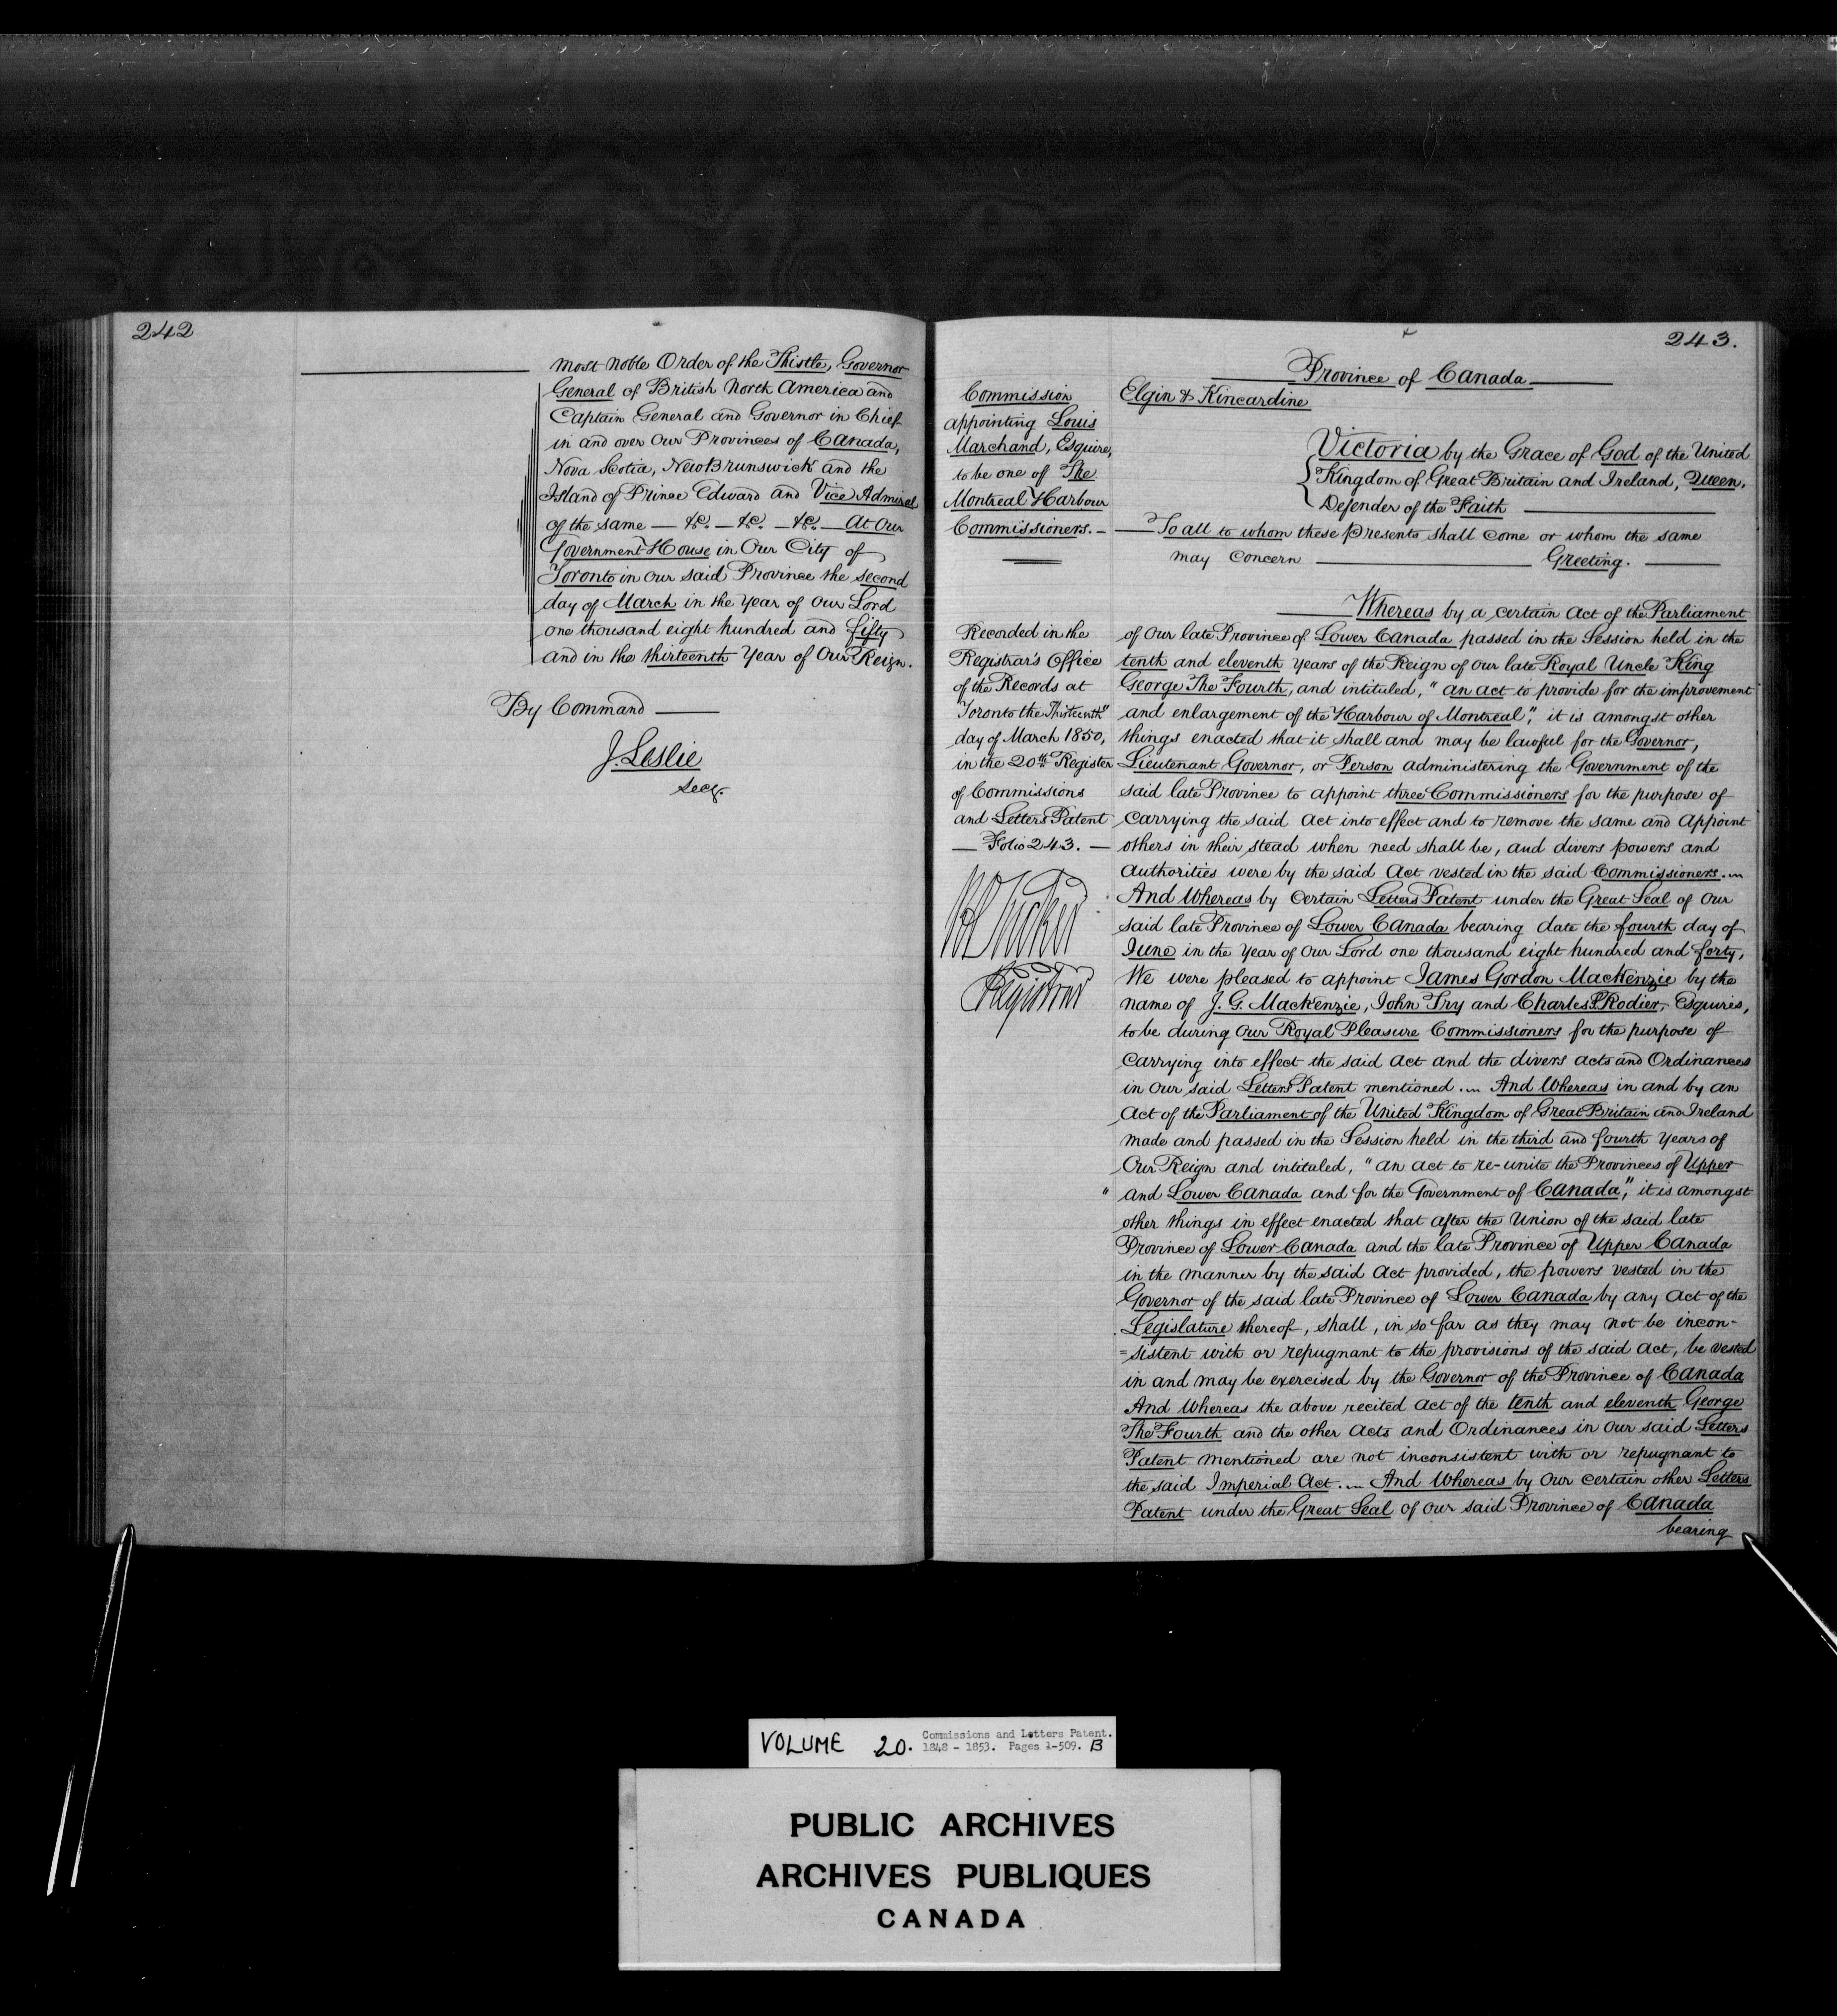 242
most noble Order of the Thistle, Governor
General of British North America and
Captain General and Governor in Chief
in and over Our Provinces of Canada,
Nova Scotia, New Brunswick and the
Island of Prince Edward and Vice Admiral
of the same — &c. — &c. — &c. — At Our
Government House in Our City of
Toronto in our said Province the second
day of March in the Year of Our Lord
one thousand eight hundred and fifty
and in the thirteenth Year of Our Reign.
By Command —
J. Leslie
Secy.
243.
Province of Canada
Elgin & Kincardine
Commission
appointing Louis
Marchand, Esquire,
to be one of The
Montreal Harbour
Commissioners. —
Recorded in the
Registrar's Office
of the Records at
Toronto the Thirteenth
day of March 1850,
in the 20th Register
of Commissions
and Letters Patent
— Folio 243. —
Registrar
Victoria by the Grace of God of the United
Kingdom of Great Britain and Ireland, Queen,
Defender of the Faith
To all to whom these Presents shall come or whom the same
may concern — Greeting. —
Whereas by a certain Act of the Parliament
of Our late Province of Lower Canada passed in the Session held in the
tenth and eleventh Years of the Reign of our late Royal Uncle King
George The Fourth, and intituled, "an act to provide for the improvement
" and enlargement of the Harbour of Montreal", it is amongst other
things enacted that it shall and may be lawful for the Governor,
Lieutenant Governor, or Person administering the Government of the
said late Province to appoint three Commissioners for the purpose of
carrying the said Act into effect and to remove the same and appoint
others in their stead when need shall be, and divers powers and
authorities were by the said Act vested in the said Commissioners.
And Whereas by certain Letters Patent under the Great Seal of Our
said late Province of Lower Canada bearing date the fourth day of
June in the Year of Our Lord one thousand eight hundred and forty,
We were pleased to appoint James Gordon MacKenzie by the
name of J. G. MacKenzie, John Try and Charles S. Rodier, Esquires,
to be during Our Royal Pleasure Commissioners for the purpose of
carrying into effect the said Act and the divers acts and Ordinances
in Our said Letters Patent mentioned. And Whereas in and by an
Act of the Parliament of the United Kingdom of Great Britain and Ireland
made and passed in the Session held in the third and fourth Years of
Our Reign and intituled, "an act to re-unite the Provinces of Upper
" and Lower Canada and for the Government of Canada", it is amongst
other things in effect enacted that after the Union of the said late
Province of Lower Canada and the late Province of Upper Canada
in the manner by the said Act provided, the powers vested in the
Governor of the said late Province of Lower Canada by any Act of the
Legislature thereof, shall, in so far as they may not be incon-
=sistent with or repugnant to the provisions of the said Act, be vested
in and may be exercised by the Governor of the Province of Canada
And Whereas the above recited Act of the tenth and eleventh George
The Fourth and the other Acts and Ordinances in our said Letters
Patent mentioned are not inconsistent with or repugnant to
the said Imperial Act. And Whereas by Our certain other Letters
Patent under the Great Seal of our said Province of Canada
bearing
VOLUME 20. Commissions and Letters Patent.
1848 - 1853. Pages 1-509. B
PUBLIC ARCHIVES
ARCHIVES PUBLIQUES
CANADA